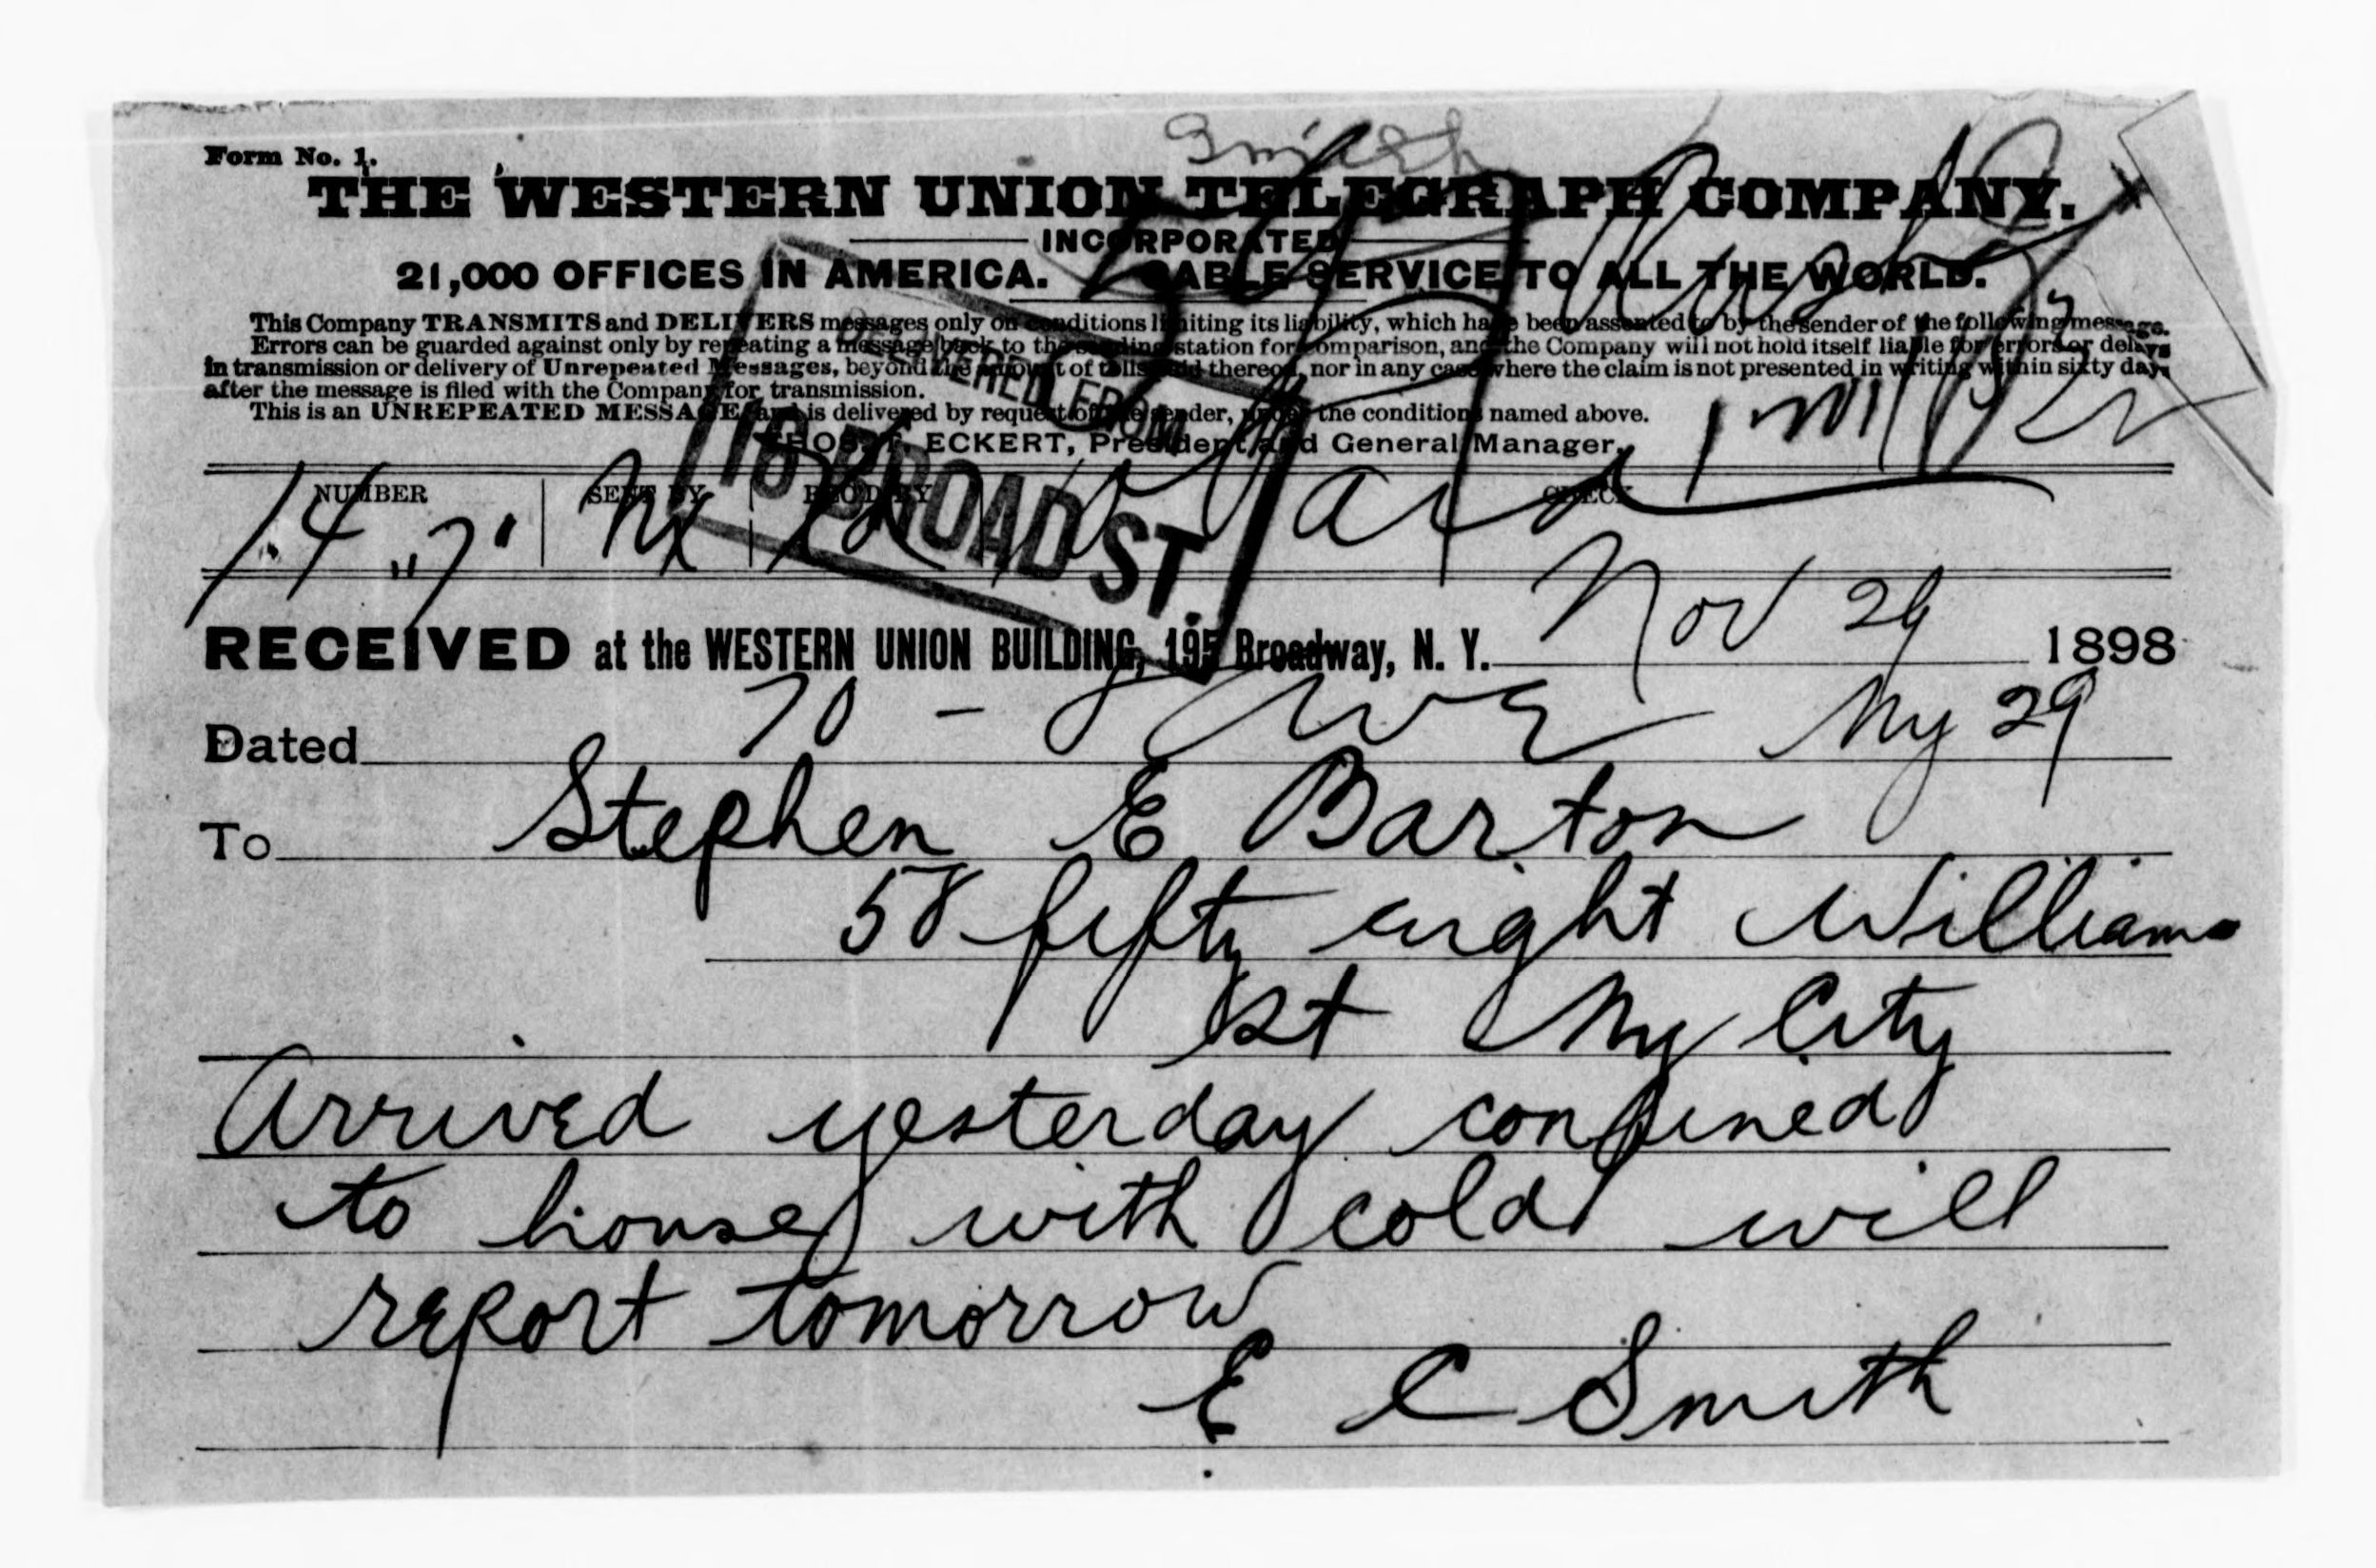 Smith
Form No. 1.
THE WESTERN UNION TELEGRAPH COMPANY.
INCORPORATED
21,000 OFFICES IN AMERICA. CABLE SERVICE TO ALL THE WORLD.
This Company TRANSMITS and DELIVERS messages only on conditions limiting its liability, which have been assented to by the sender of the following message.
Errors can be guarded against only by repeating a message back to the sending station for comparison, and the Company will not hold itself liable for errors or delays
in transmission or delivery of Unrepeated Messages, beyond the amount of tolls paid thereon, nor in any case where the claim is not presented in writing within sixty days
after the message is filed with the Company for transmission.
This is an UNREPEATED MESSAGE, and is delivered by request of the sender, under the conditions named above.
THOS. T. ECKERT, President and General Manager.
DELIVERED FROM
16 BROAD ST.
NUMBER SENT BY REC'D BY CHECK
14
RECEIVED at the WESTERN UNION BUILDING, 195 Broadway, N. Y. Nov 29 1898
Dated 70 - Ny 29
To Stephen E Barton
58 fifty eight William
St Ny City
Arrived yesterday confined
to house with cold will
report tomorrow
E C Smith